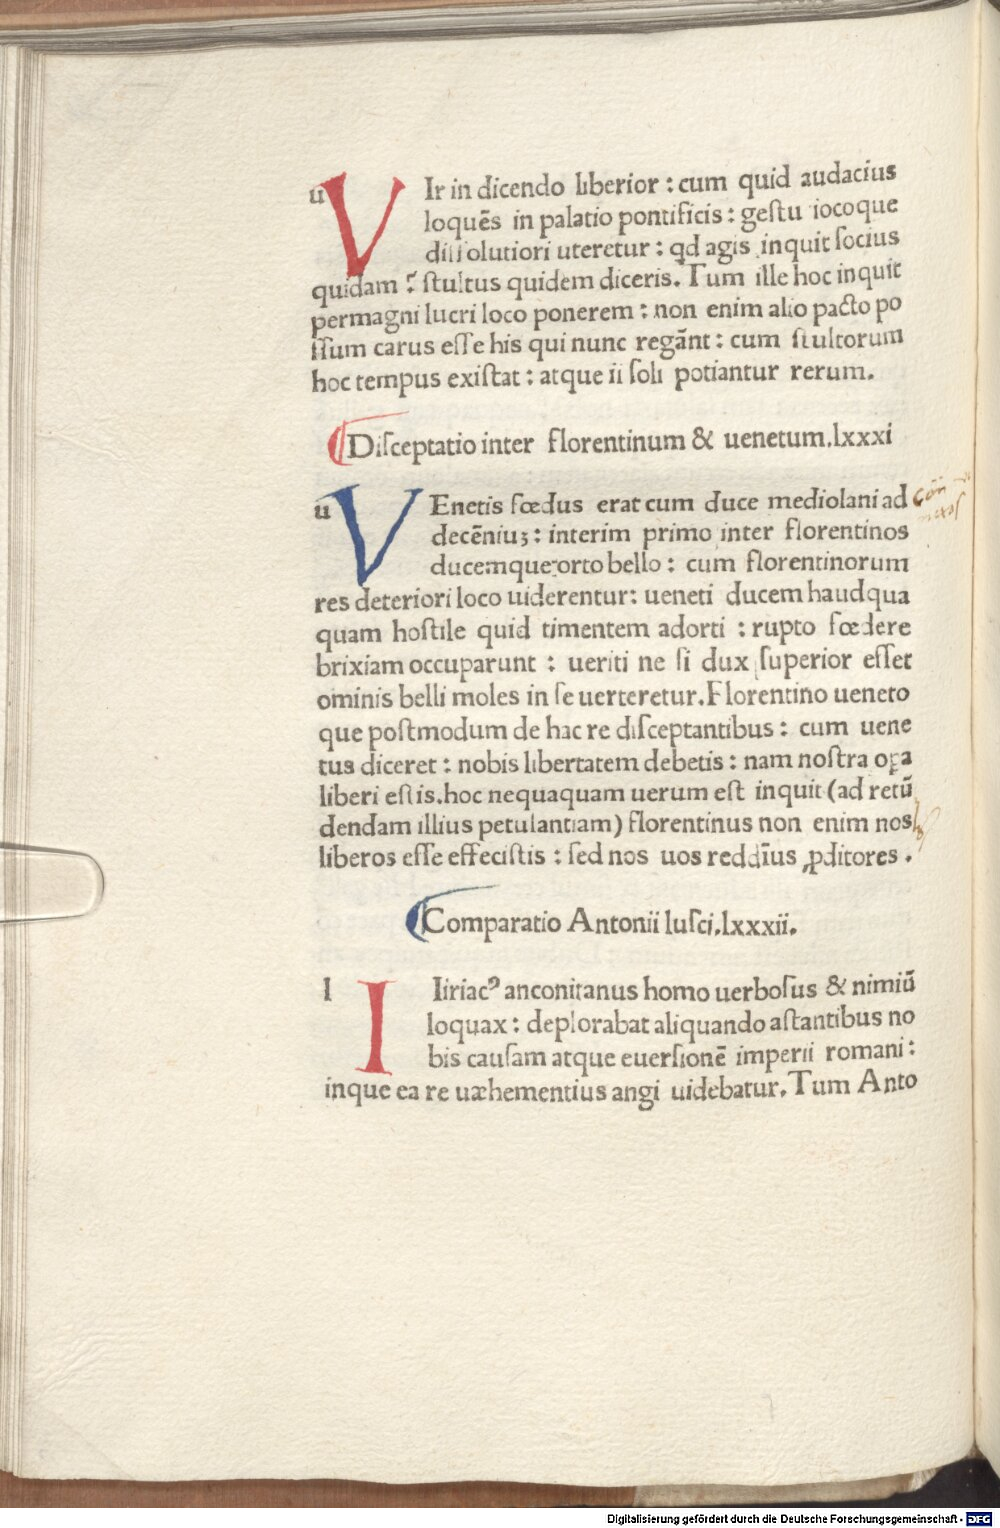 u VIr in dicendo liberior : cum quid audacius
loquēs in palatio pontificis : geſtu iocoque
diſſolutiori uteretur : qd agis inquit ſocius
quidam ? ſtultus quidem diceris. Tum ille hoc inquit
permagni lucri loco ponerem : non enim alio pacto po
ſſum carus eſſe his qui nunc regāt : cum ſtultorum
hoc tempus exiſtat : atque ii ſoli potiantur rerum.
Diſceptatio inter florentinum & uenetum.lxxxi
u VEnetis fœdus erat cum duce mediolani ad
decēniuꝫ : interim primo inter florentinos
ducemque orto bello : cum florentinorum
res deteriori loco uiderentur: ueneti ducem haudqua
quam hoſtile quid timentem adorti : rupto fœdere
brixiam occuparunt : ueriti ne ſi dux ſuperior eſſet
ominis belli moles in ſe uerteretur.Florentino ueneto
que poſtmodum de hac re diſceptantibus : cum uene
tus diceret : nobis libertatem debetis : nam noſtra opa
liberi eſtis.hoc nequaquam uerum eſt inquit (ad retū
dendam illius petulantiam) florentinus non enim nos
liberos eſſe effeciſtis : ſed nos uos reddīus ꝓditores .
Comparatio Antonii luſci.lxxxii.
I I Iiriacꝰ anconitanus homo uerboſus & nimiū
loquax : deplorabat aliquando aſtantibus no
bis cauſam atque euerſionē imperii romani :
inque ea re uæhementius angi uidebatur. Tum Anto
Digitalisierung gefördert durch die Deutsche Forschungsgemeinschaft - DFG